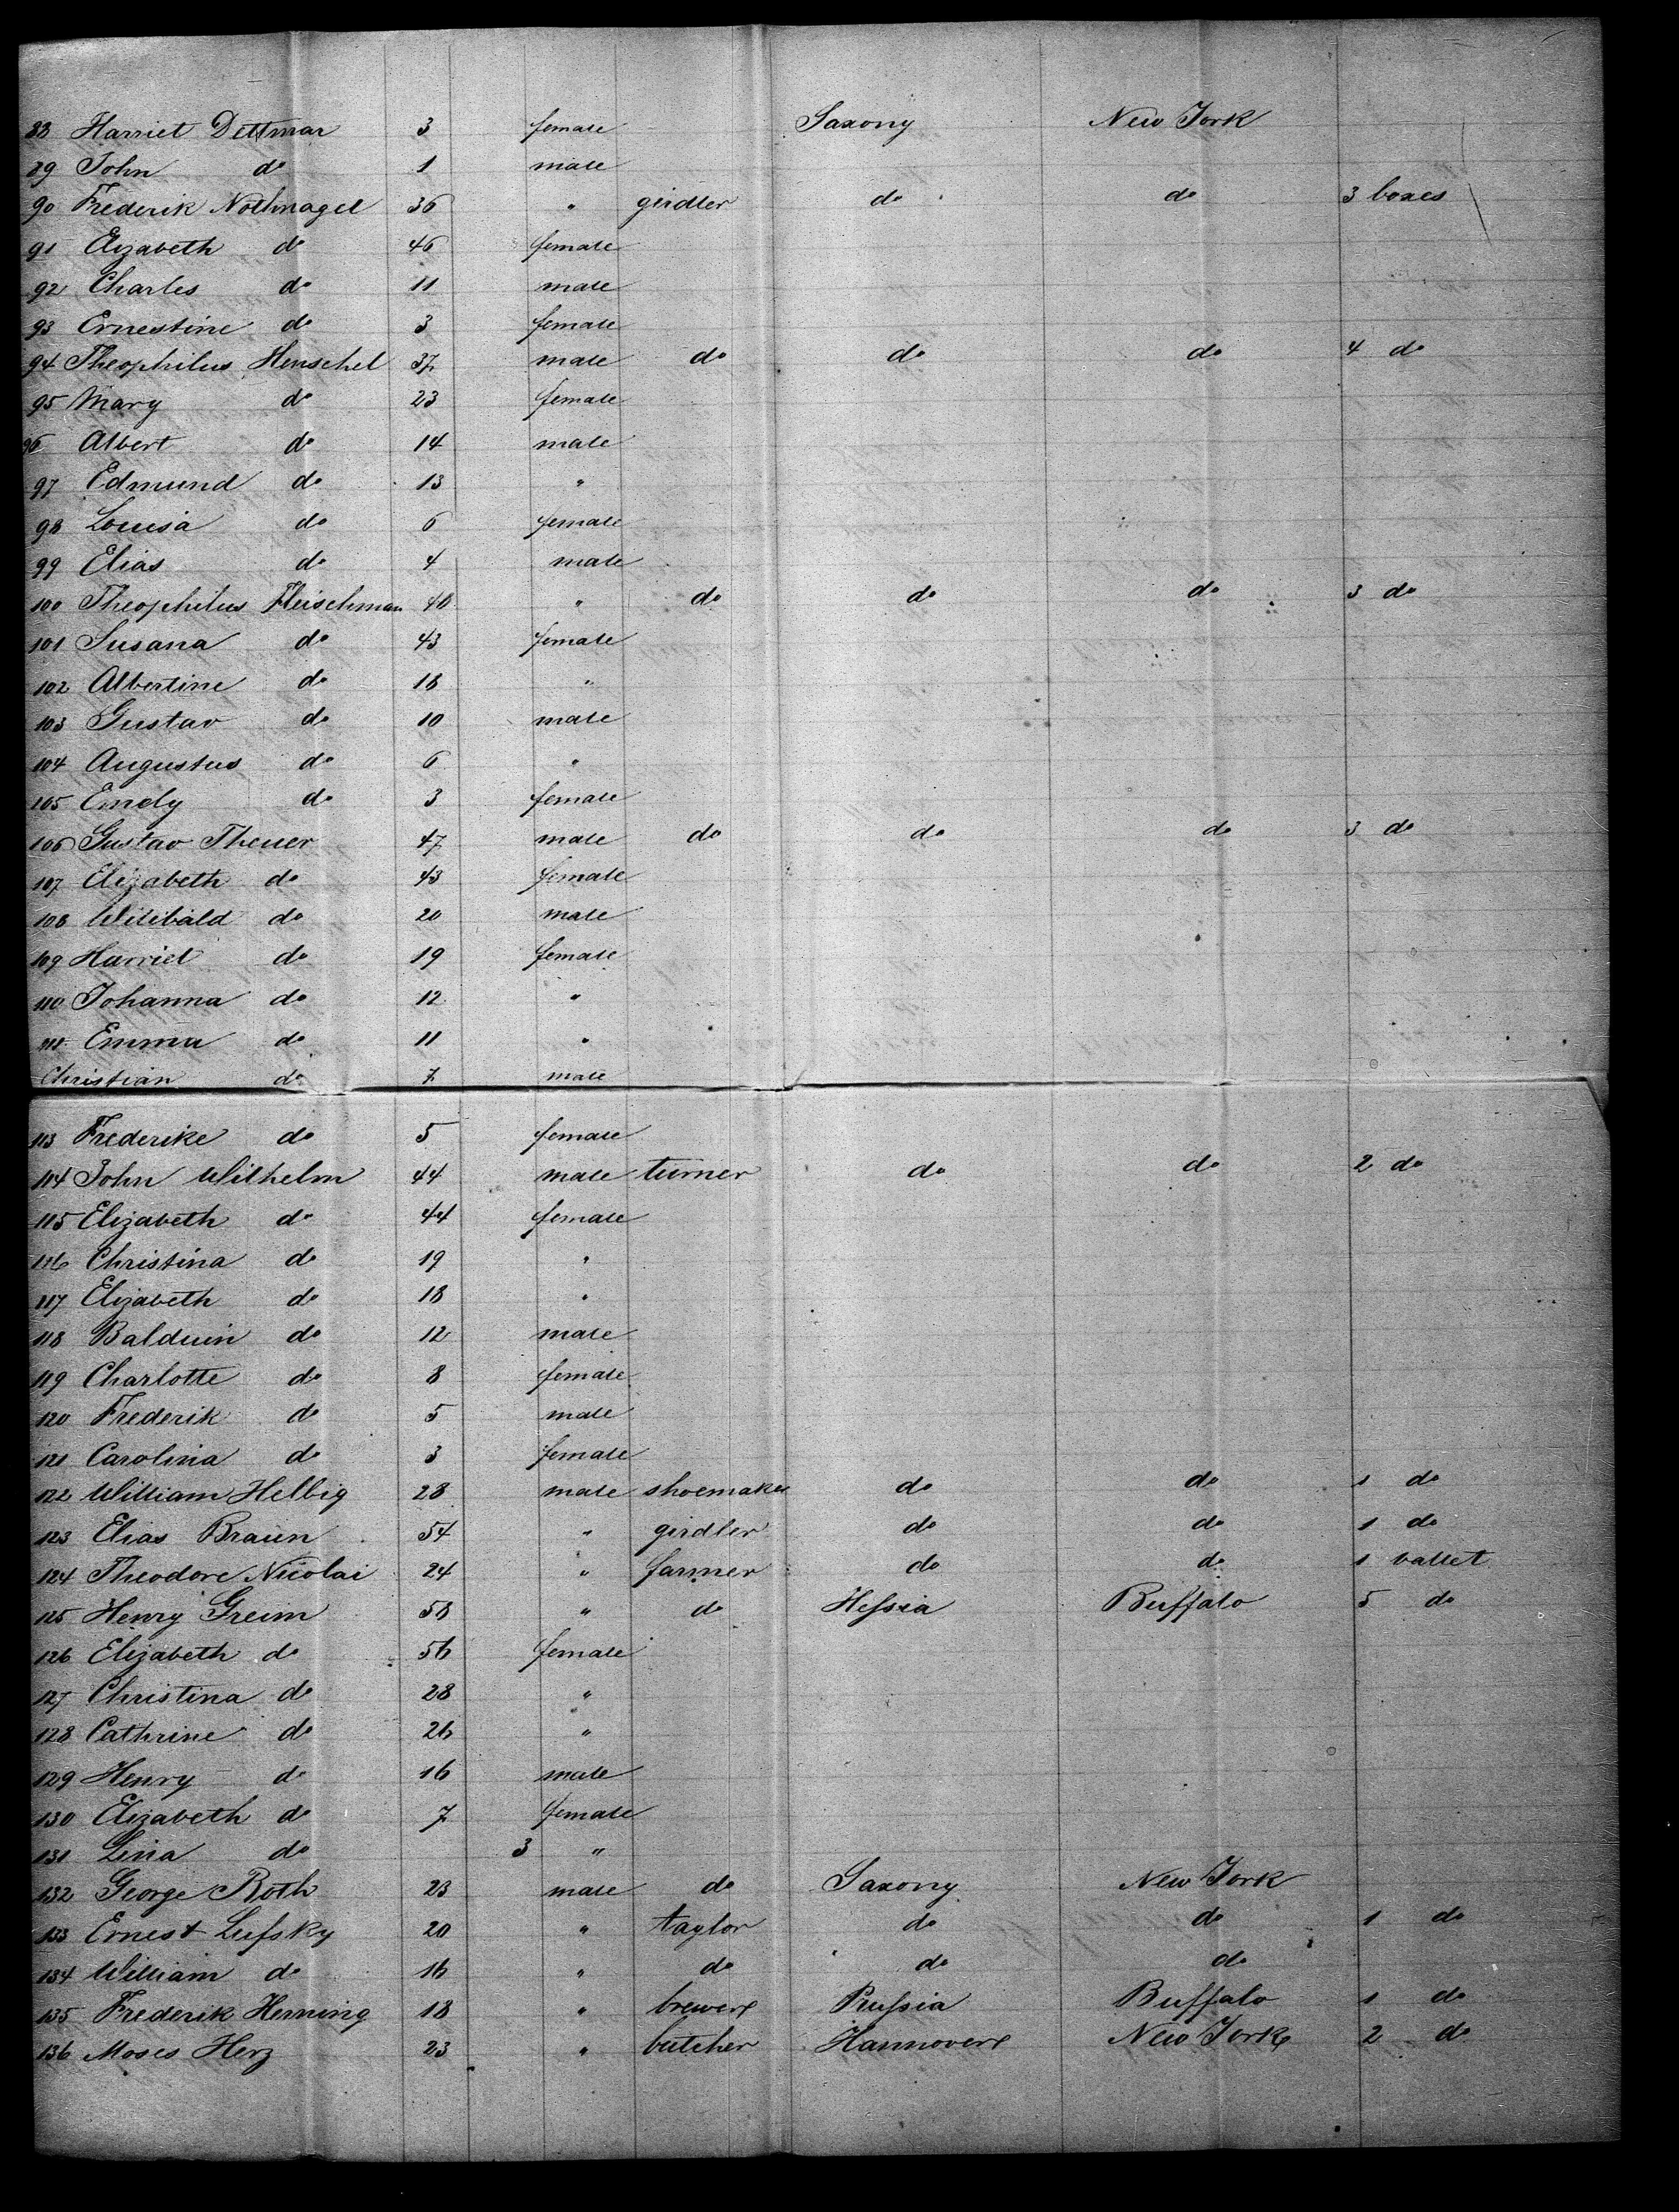 88 Harriet Dettmar 3 female Saxony New York
89 John do 1 male
90 Frederik Nothnagel 36 " girdler do do 3 boxes
91 Elizabeth do 46 female
92 Charles do 11 male
93 Ernestine do 3 female
94 Theophilus Henschel 37 male do do do 4 do
95 Mary do 23 female
96 Albert do 14 male
97 Edmund do 13 "
98 Louisa do 6 female
99 Elias do 4 male
100 Theophilus Fleischman 40 " do do do 3 do
101 Susana do 43 female
102 Albertine do 18 "
103 Gustav do 10 male
104 Augustus do 6 "
105 Emely do 3 female
106 Gustav Theuer 47 male do do do 3 do
107 Elizabeth do 43 female
108 Willibald do 20 male
109 Harriet do 19 female
110 Johanna do 12 "
111 Emma do 11 "
Christian do 7 male
113 Frederike do 5 female
114 John Wilhelm 44 male turner do do 2 do
115 Elizabeth do 44 female
116 Christina do 19 "
117 Elizabeth do 18 "
118 Balduin do 12 male
119 Charlotte do 8 female
120 Frederik do 5 male
121 Carolina do 3 female
122 William Helbig 28 male shoemaker do do 1 do
123 Elias Braun 54 " girdler do do 1 do
124 Theodore Nicolai 24 " farmer do do 1 vallet
125 Henry Greim 58 " do Hessia Buffalo 5 do
126 Elizabeth do 56 female
127 Christina do 28 "
128 Cathrine do 26 "
129 Henry do 16 male
130 Elizabeth do 7 female
131 Lina do 3 "
132 George Roth 23 male do Saxony New York
133 Ernest Lufsky 20 " taylor do do 1 do
134 William do 16 " do do do
135 Frederik Henning 18 " brewer Prussia Buffalo 1 do
136 Moses Herz 23 " butcher Hannover New York 2 do